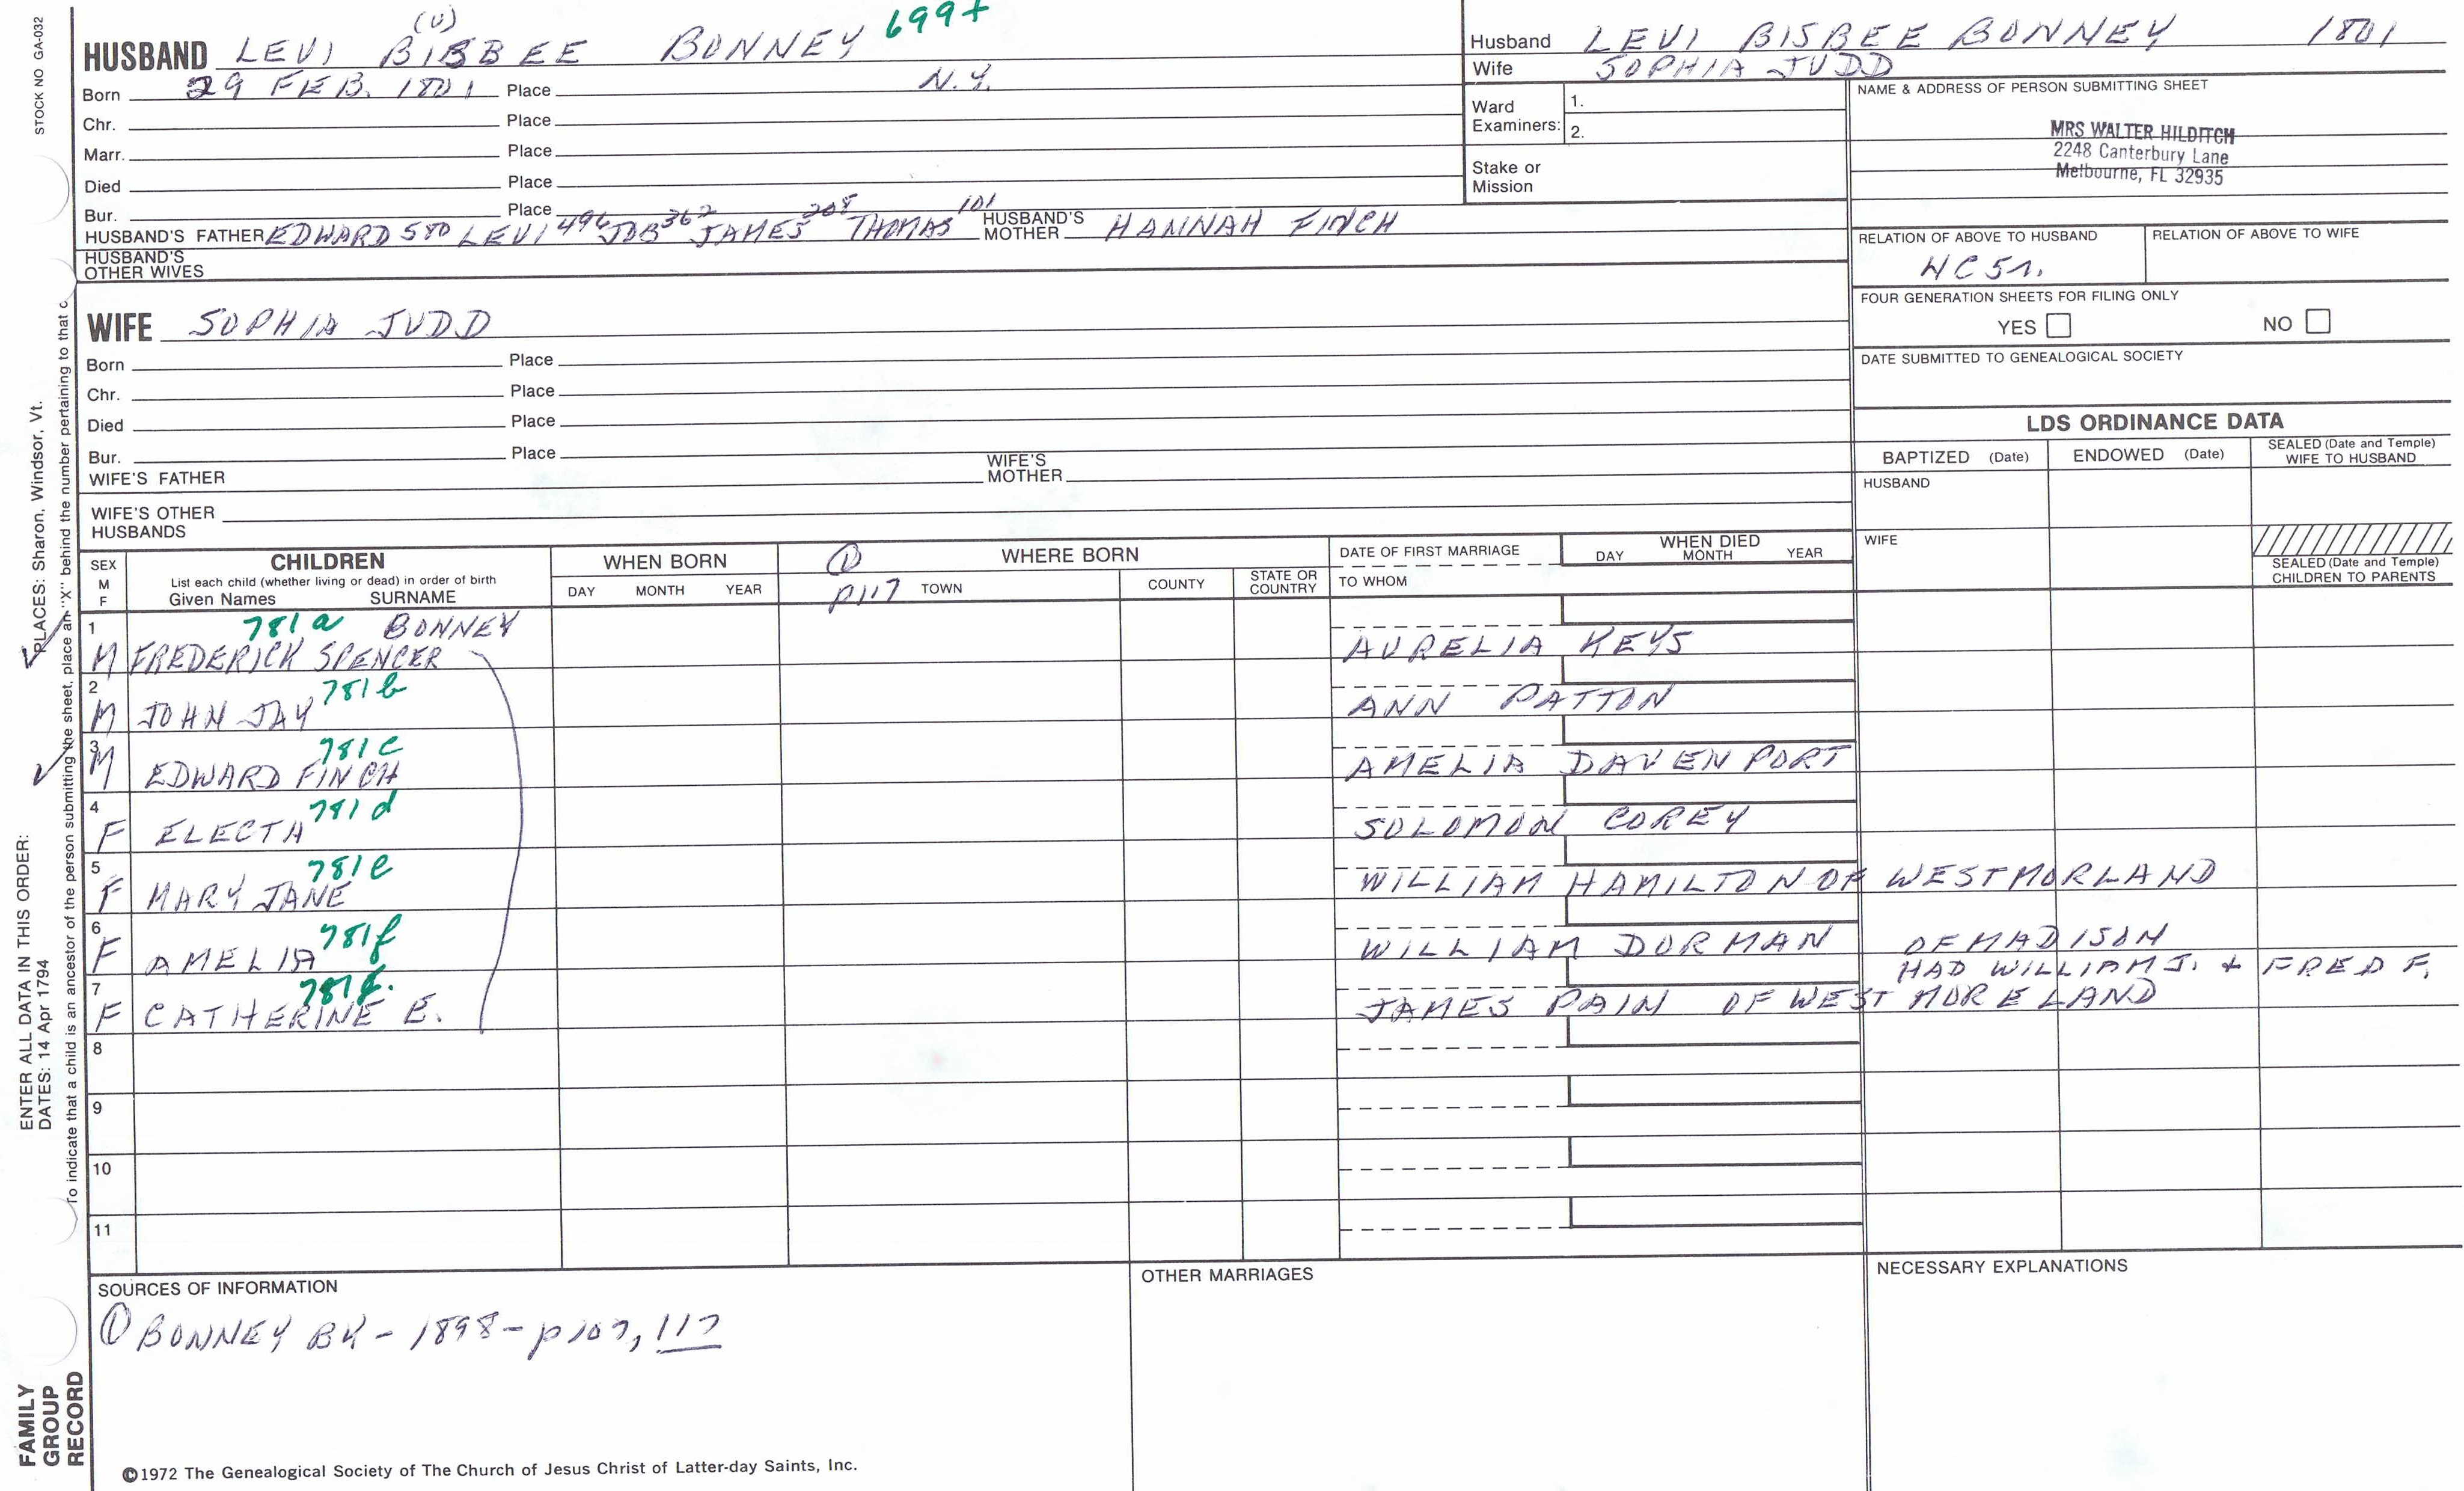 STOCK NO GA-032
(U)
HUSBAND LEVI BISBEE BONNEY 699+
Born 29 FEB. 1801 Place N.Y.
Chr. Place
Marr. Place
Died Place
Bur. Place
HUSBAND'S FATHER EDWARD 580 LEVI 496 JOB 362 JAMES 208 THOMAS 101 HUSBAND'S MOTHER HANNAH FINCH
HUSBAND'S OTHER WIVES
Husband LEVI BISBEE BONNEY 1801
Wife SOPHIA JUDD
Ward Examiners: 1.
2.
Stake or Mission
NAME & ADDRESS OF PERSON SUBMITTING SHEET
MRS WALTER HILDITCH
2248 Canterbury Lane
Melbourne, FL 32935
RELATION OF ABOVE TO HUSBAND RELATION OF ABOVE TO WIFE
FOUR GENERATION SHEETS FOR FILING ONLY
YES NO
DATE SUBMITTED TO GENEALOGICAL SOCIETY
WIFE SOPHIA JUDD
Born Place
Chr. Place
Died Place
Bur. Place
WIFE'S FATHER WIFE'S MOTHER
WIFE'S OTHER HUSBANDS
LDS ORDINANCE DATA
BAPTIZED (Date) ENDOWED (Date) SEALED (Date and Temple) WIFE TO HUSBAND
HUSBAND
WIFE
SEALED (Date and Temple) CHILDREN TO PARENTS
SEX M F
CHILDREN
List each child (whether living or dead) in order of birth
Given Names SURNAME
WHEN BORN
DAY MONTH YEAR
① WHERE BORN
p117 TOWN COUNTY STATE OR COUNTRY
DATE OF FIRST MARRIAGE
TO WHOM
WHEN DIED
DAY MONTH YEAR
1 781a BONNEY
M FREDERICK SPENCER AURELIA KEYS
2 781b
M JOHN JAY ANN PATTON
3 781c
M EDWARD FINCH AMELIA DAVENPORT
4 781d
F ELECTA SOLOMON COREY
5 781e
F MARY JANE WILLIAM HAMILTON OF WESTMORLAND
6 781f
F AMELIA WILLIAM DORMAN OF MADISON
HAD WILLIAM J. + FRED F.
7
F CATHERINE E. JAMES PAIN OF WESTMORELAND
8
9
10
11
SOURCES OF INFORMATION
① BONNEY BK - 1898 - p107, 117
OTHER MARRIAGES
NECESSARY EXPLANATIONS
©1972 The Genealogical Society of The Church of Jesus Christ of Latter-day Saints, Inc.
FAMILY GROUP RECORD
ENTER ALL DATA IN THIS ORDER:
DATES: 14 Apr 1794
PLACES: Sharon, Windsor, Vt.
To indicate that a child is an ancestor of the person submitting the sheet, place an "X" behind the number pertaining to that c